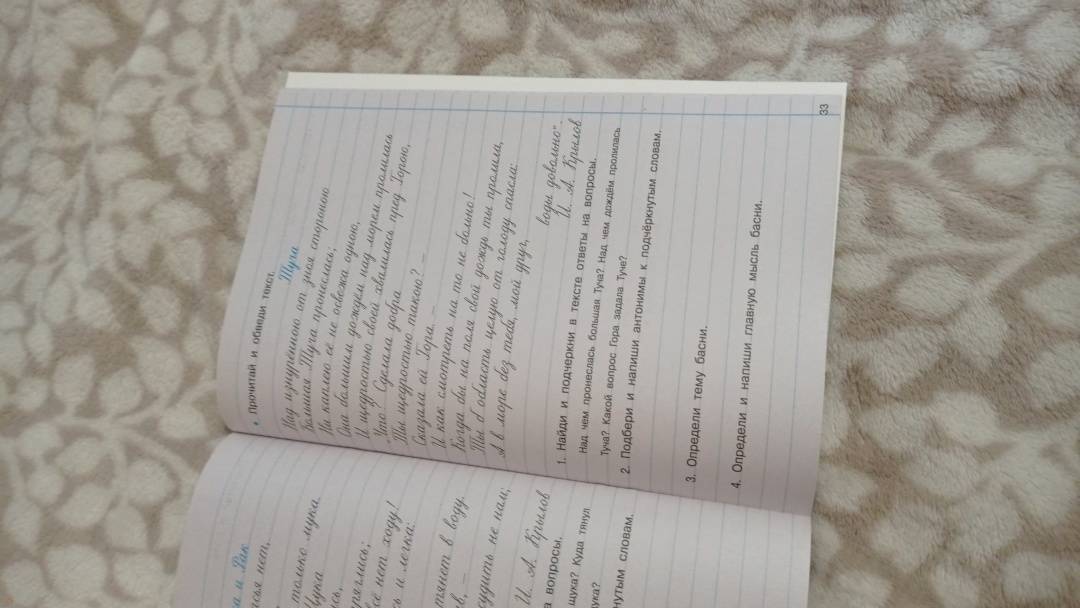 а и Рак
ься нет,
только мука.
Щука
сь,
ряглись;
сё нет ходу!
сь и легка:
тянет в воду.
в, –
судить не нам;
И. А. Крылов
а вопросы.
щука? Куда тянул
ука?
нутым словам.
• Прочитай и обведи текст.
Туча
Над изнурённою от зноя стороною
Большая Туча пронеслась;
Ни каплею её не освежа одною,
Она большим дождём над морем пролилась
И щедростью своей хвалилась пред Горою,
"Что Сделала добра
Ты щедростью такою? –
Сказала ей Гора. –
И как смотреть на то не больно!
Когда бы на поля свой дождь ты пролила,
Ты б область целую от голоду спасла:
А в море без тебя, мой друг,
воды довольно".
И. А. Крылов
1. Найди и подчеркни в тексте ответы на вопросы.
Над чем пронеслась большая Туча? Над чем дождём пролилась
Туча? Какой вопрос Гора задала Туче?
2. Подбери и напиши антонимы к подчёркнутым словам.
3. Определи тему басни.
4. Определи и напиши главную мысль басни.
33